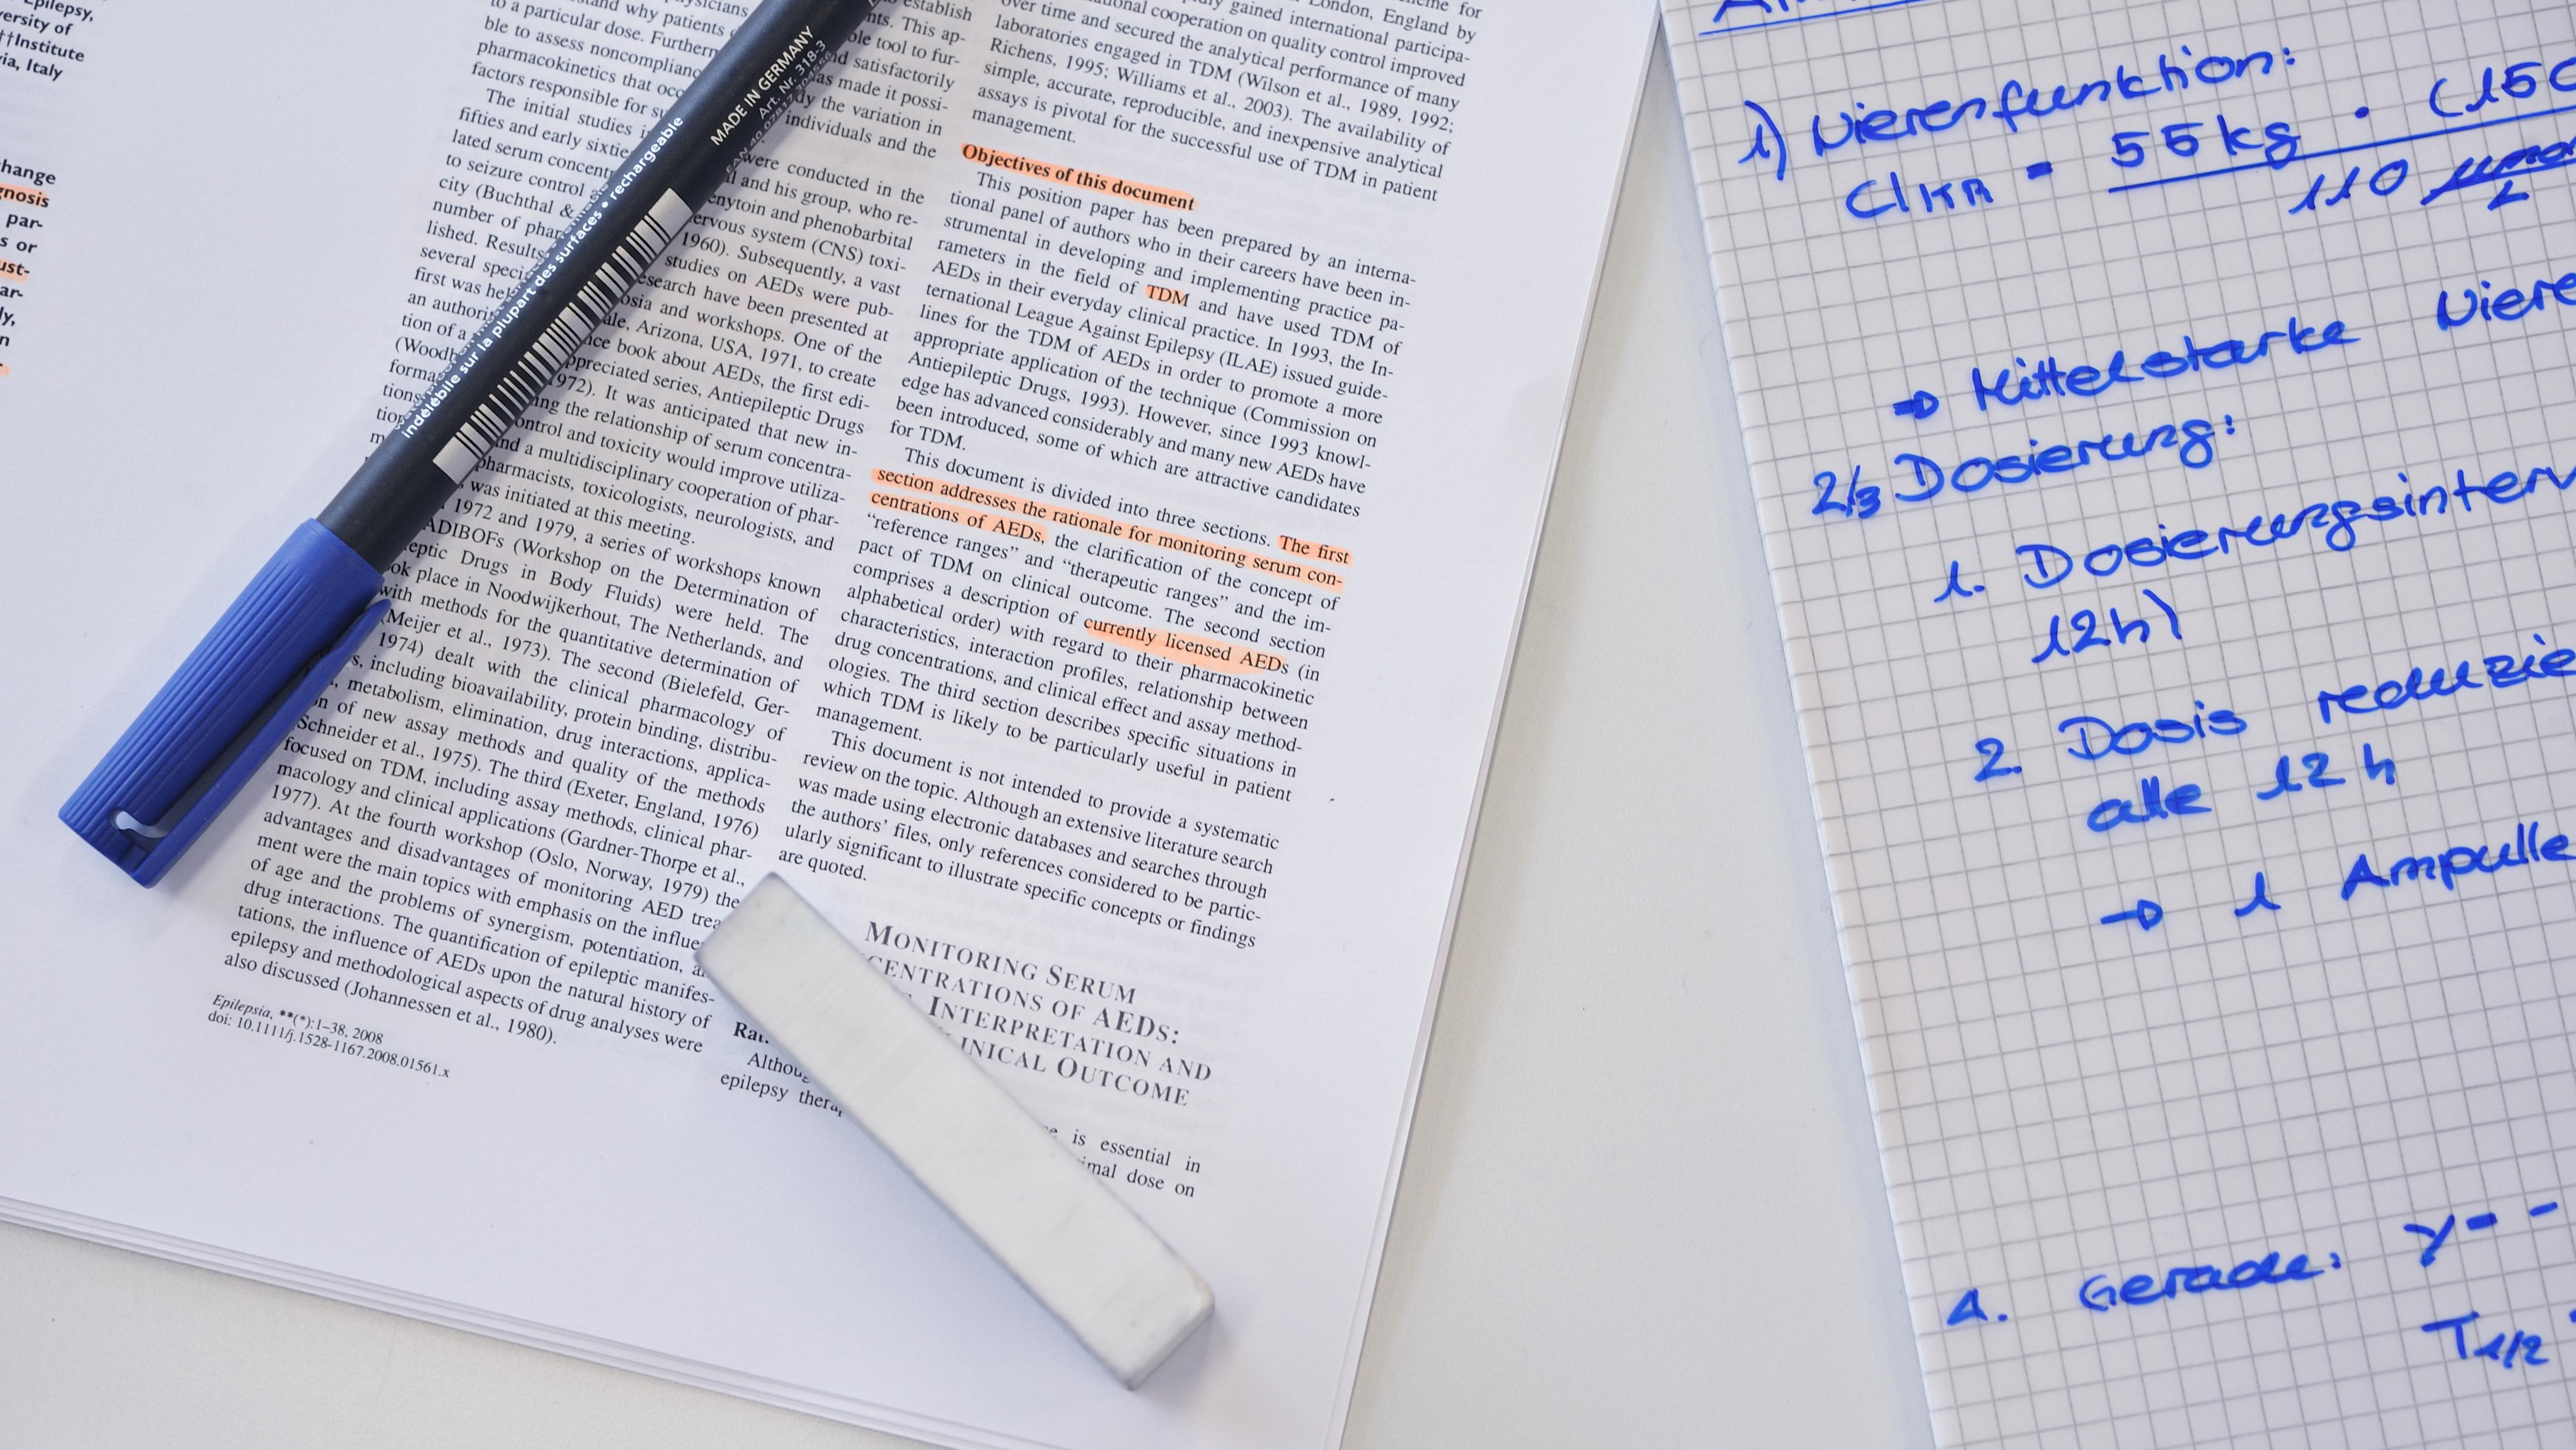 Epilepsy,
versity of
††Institute
via, Italy
change
gnosis
par-
s or
ust-
ar-
ly,
n
physicians
stand why patients
to a particular dose. Furthern
ble to assess noncomplianc
pharmacokinetics that occ
factors responsible for su
The initial studies i
fifties and early sixtie
lated serum concent
to seizure control
city (Buchthal &
number of phar
lished. Results
several speci
first was hel
an authori
tion of a
(Woodb
forma
tions
tion
m
establish
nts. This ap-
ble tool to fur-
nd satisfactorily
has made it possi-
dy the variation in
individuals and the
were conducted in the
ll and his group, who re-
enytoin and phenobarbital
ervous system (CNS) toxi-
1960). Subsequently, a vast
studies on AEDs were pub-
esearch have been presented at
osia and workshops. One of the
ale, Arizona, USA, 1971, to create
nce book about AEDs, the first edi-
ppreciated series, Antiepileptic Drugs
1972). It was anticipated that new in-
ing the relationship of serum concentra-
ontrol and toxicity would improve utiliza-
nd a multidisciplinary cooperation of phar-
pharmacists, toxicologists, neurologists, and
was initiated at this meeting.
1972 and 1979, a series of workshops known
ADIBOFs (Workshop on the Determination of
leptic Drugs in Body Fluids) were held. The
ok place in Noodwijkerhout, The Netherlands, and
with methods for the quantitative determination of
(Meijer et al., 1973). The second (Bielefeld, Ger-
1974) dealt with the clinical pharmacology of
s, including bioavailability, protein binding, distribu-
metabolism, elimination, drug interactions, applica-
on of new assay methods and quality of the methods
Schneider et al., 1975). The third (Exeter, England, 1976)
focused on TDM, including assay methods, clinical phar-
macology and clinical applications (Gardner-Thorpe et al.,
1977). At the fourth workshop (Oslo, Norway, 1979) the
advantages and disadvantages of monitoring AED trea
ment were the main topics with emphasis on the influe
of age and the problems of synergism, potentiation, a
drug interactions. The quantification of epileptic manifes-
tations, the influence of AEDs upon the natural history of
epilepsy and methodological aspects of drug analyses were
also discussed (Johannessen et al., 1980).
Epilepsia, **(*):1–38, 2008
doi: 10.1111/j.1528-1167.2008.01561.x
London, England by
gained international participa-
tional cooperation on quality control improved
over time and secured the analytical performance of many
laboratories engaged in TDM (Wilson et al., 1989, 1992;
Richens, 1995; Williams et al., 2003). The availability of
simple, accurate, reproducible, and inexpensive analytical
assays is pivotal for the successful use of TDM in patient
management.
Objectives of this document
This position paper has been prepared by an interna-
tional panel of authors who in their careers have been in-
strumental in developing and implementing practice pa-
rameters in the field of TDM and have used TDM of
AEDs in their everyday clinical practice. In 1993, the In-
ternational League Against Epilepsy (ILAE) issued guide-
lines for the TDM of AEDs in order to promote a more
appropriate application of the technique (Commission on
Antiepileptic Drugs, 1993). However, since 1993 knowl-
edge has advanced considerably and many new AEDs have
been introduced, some of which are attractive candidates
for TDM.
This document is divided into three sections. The first
section addresses the rationale for monitoring serum con-
centrations of AEDs, the clarification of the concept of
“reference ranges” and “therapeutic ranges” and the im-
pact of TDM on clinical outcome. The second section
comprises a description of currently licensed AEDs (in
alphabetical order) with regard to their pharmacokinetic
characteristics, interaction profiles, relationship between
drug concentrations, and clinical effect and assay method-
ologies. The third section describes specific situations in
which TDM is likely to be particularly useful in patient
management.
This document is not intended to provide a systematic
review on the topic. Although an extensive literature search
was made using electronic databases and searches through
the authors’ files, only references considered to be partic-
ularly significant to illustrate specific concepts or findings
are quoted.
MONITORING SERUM
CENTRATIONS OF AEDS:
INTERPRETATION AND
CLINICAL OUTCOME
Rat
Althoug
epilepsy therap
is essential in
imal dose on
MADE IN GERMANY
Art. Nr. 318-3
indélébile sur la plupart des surfaces • rechargeable
1) Nierenfunktion:
ClKR = 55 kg · (150
110 µmol
L
→ Mittelstarke Niere
2/3 Dosierung:
1. Dosierungsinterv
12h)
2. Dosis reduzie
alle 12 h
→ 1 Ampulle
4. Gerade: y = -
T1/2